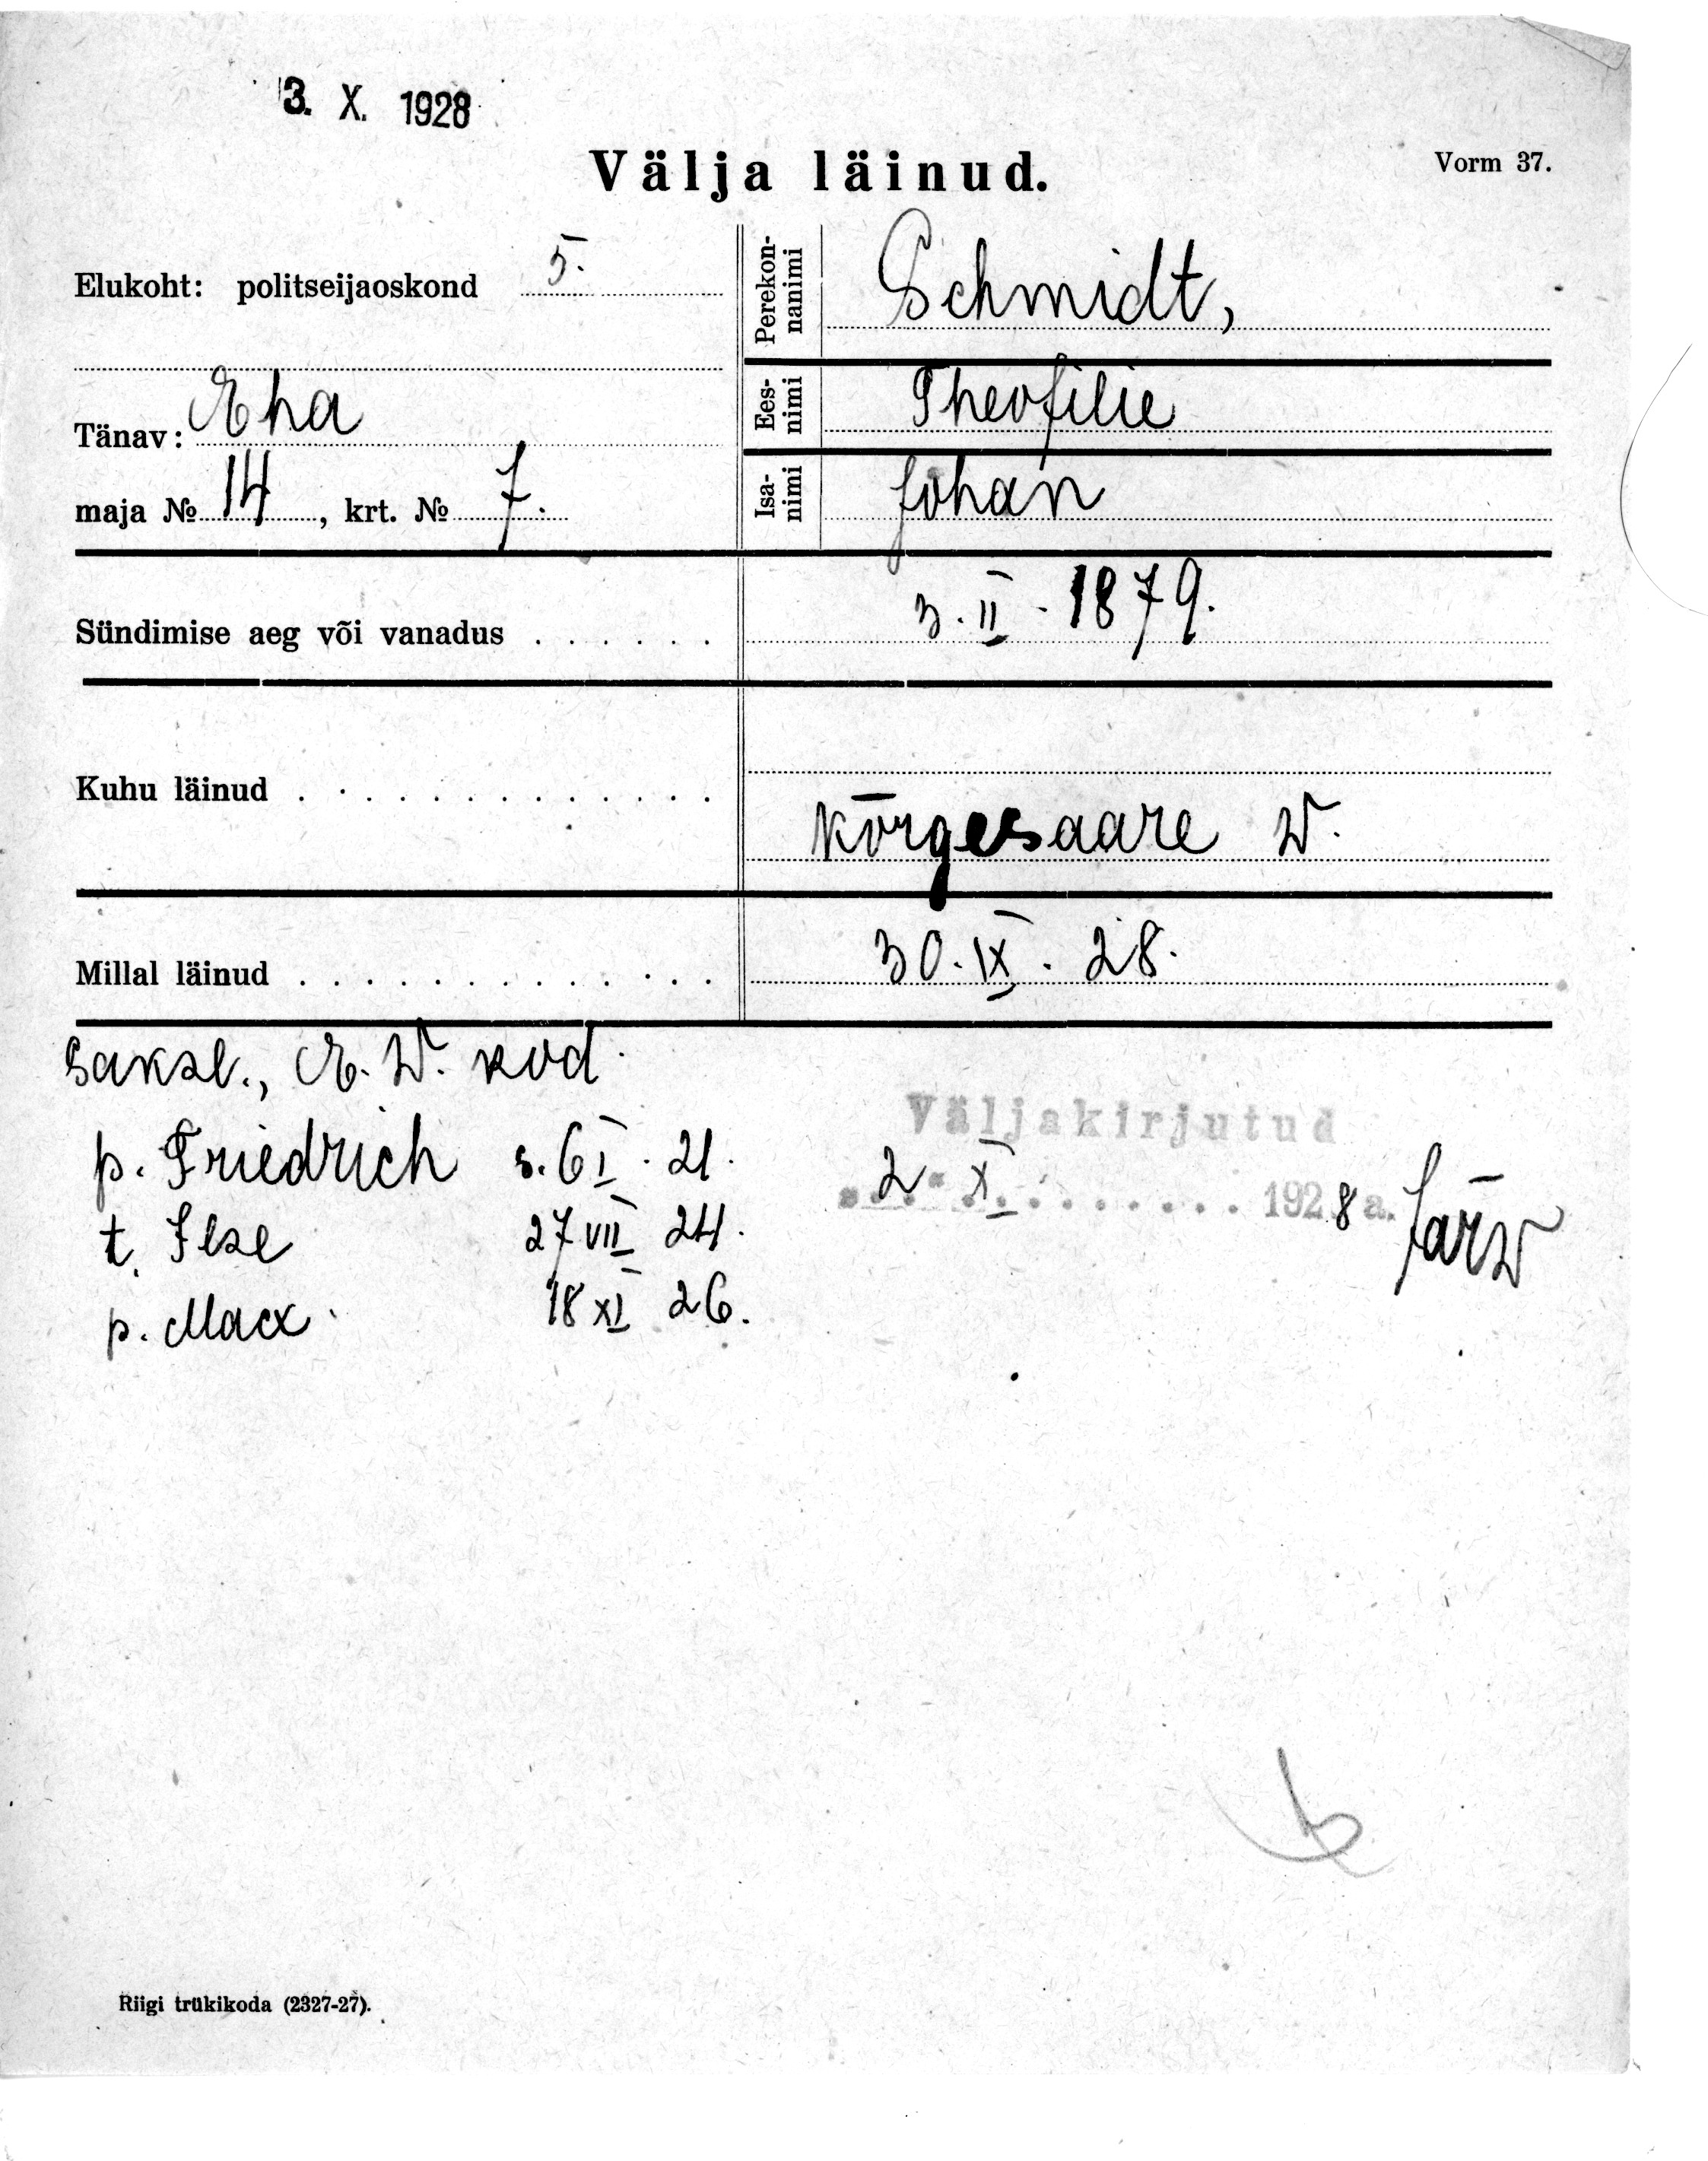 3. X. 1928
Välja läinud.
Vorm 37.
Elukoht: politseijaoskond 5.
Tänav: Eha
maja № 14, krt. № 7.
Perekonnanimi Schmidt,
Eesnimi Theofilie
Isanimi Johan
Sündimise aeg või vanadus . . . . . . 3. II. 1879.
Kuhu läinud . . . . . . . . . . . . . Kõrgesaare W.
Millal läinud . . . . . . . . . . . . . 30. IX. 28.
saksl., E. W. kod.
p. Friedrich s. 6 I. 21.
t. Ilse 27 VII 24.
p. Max 18 XI 26.
Väljakirjutud
2 X 1928 a. Järw
Riigi trükikoda (2327-27).